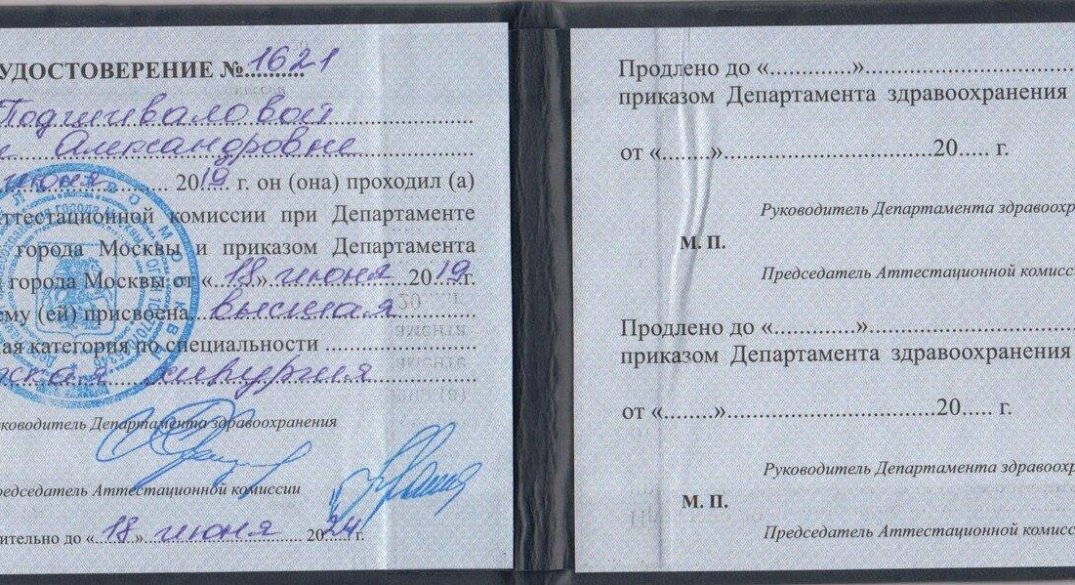 УДОСТОВЕРЕНИЕ №..1621
Подшиваловой
Александровне
июня 2019 г. он (она) проходил (а)
аттестационной комиссии при Департаменте
города Москвы и приказом Департамента
города Москвы от «18» июня 2019 г.
ему (ей) присвоена высшая
ая категория по специальности
ская хирургия
ководитель Департамента здравоохранения
редседатель Аттестационной комиссии
вительно до «18» июня 2024 г.
Продлено до «.............»
приказом Департамента здравоохранения
от «........»..................................20..... г.
Руководитель Департамента здравоохр
М. П.
Председатель Аттестационной комисс
Продлено до «.............»
приказом Департамента здравоохранения
от «........»..................................20..... г.
Руководитель Департамента здравоохр
М. П.
Председатель Аттестационной комисс